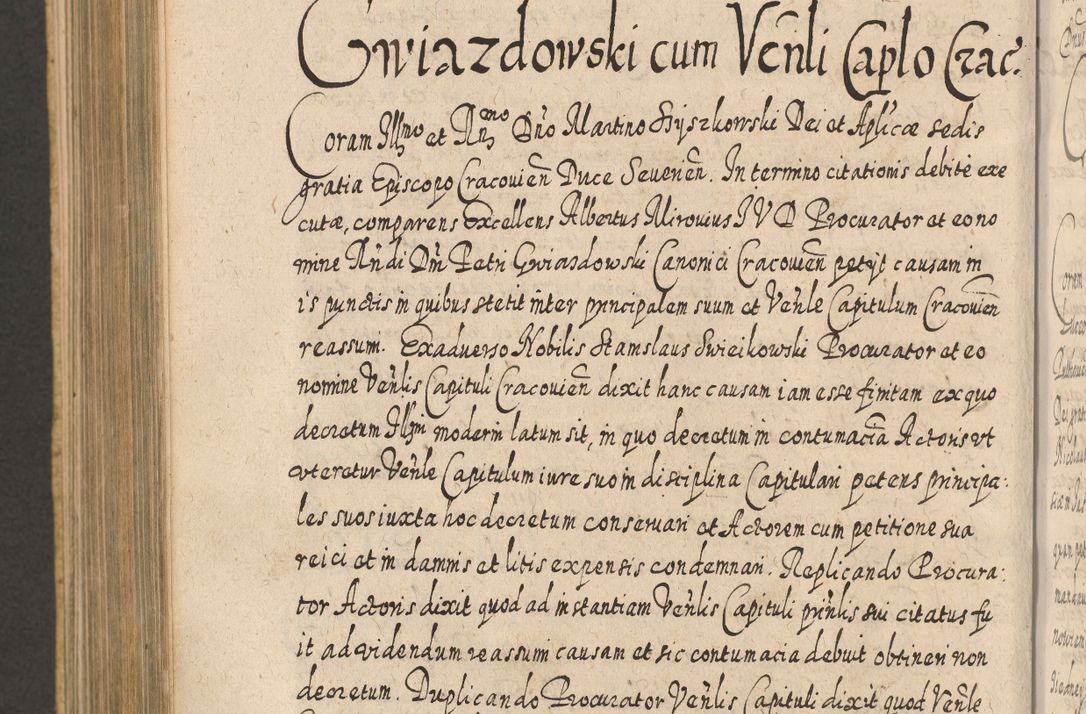 Gwiazdowski cum Venli Caplo Crac.
Coram Illmo et Rndmo Dno Martino Szyszkowski Dei et Aplicæ sedis
gratia Episcopo Cracovien Duce Severien. In termino citationis debite exe
cutæ, comparens Excellens Albertus Mirovius I V D Procurator et eo no
mine Rndi Dni Petri Gwiazdowski Canonici Cracovien petyt causam in
is punctis in quibus stetit inter principalem suum et Venle Capitulum Cracovien
reassum. Exadverso Nobilis Stanislaus Swieikowski Procurator et eo
nomine Venlis Capituli Cracovien dixit hanc causam iam esse finitam ex quo
decretum Illmi moderni latum sit, in quo decretum in contumaciã Actoris ut
uteretur Venle Capitulum iure suo in disciplina Capitulari petens principa:
les suos iuxta hoc decretum conservari et Actorem cum petitione sua
reici et in damnis et litis expensis condemnari. Replicando Procura:
tor Actoris dixit quod ad instantiam Venlis Capituli prinlis sui citatus fu
it ad videndum reassumi causam et sic contumacia debuit obtineri non
decretum. Duplicando Procurator Venlis Capituli dixit quod Venle